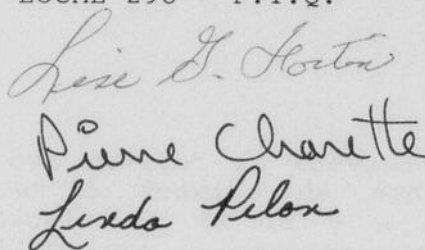 LOCAL 298 F.T.Q.
Lise G. Horton
Pierre Charette
Linda Pilon